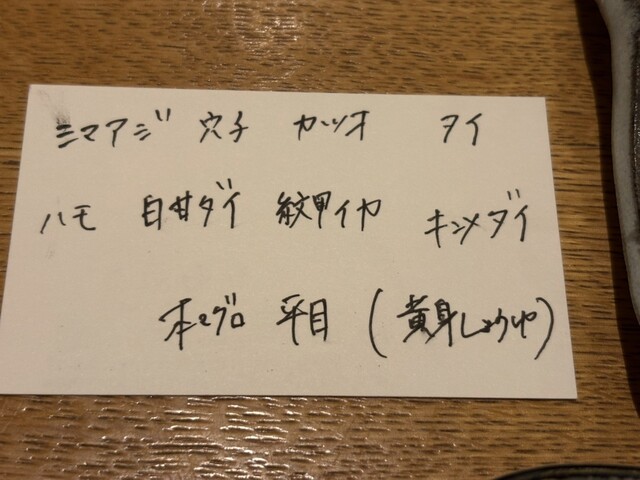 シマアジ 穴子 カツオ タイ
ハモ 白甘ダイ 紋甲イカ キンメダイ
本マグロ 平目 (黄身しょうゆ)